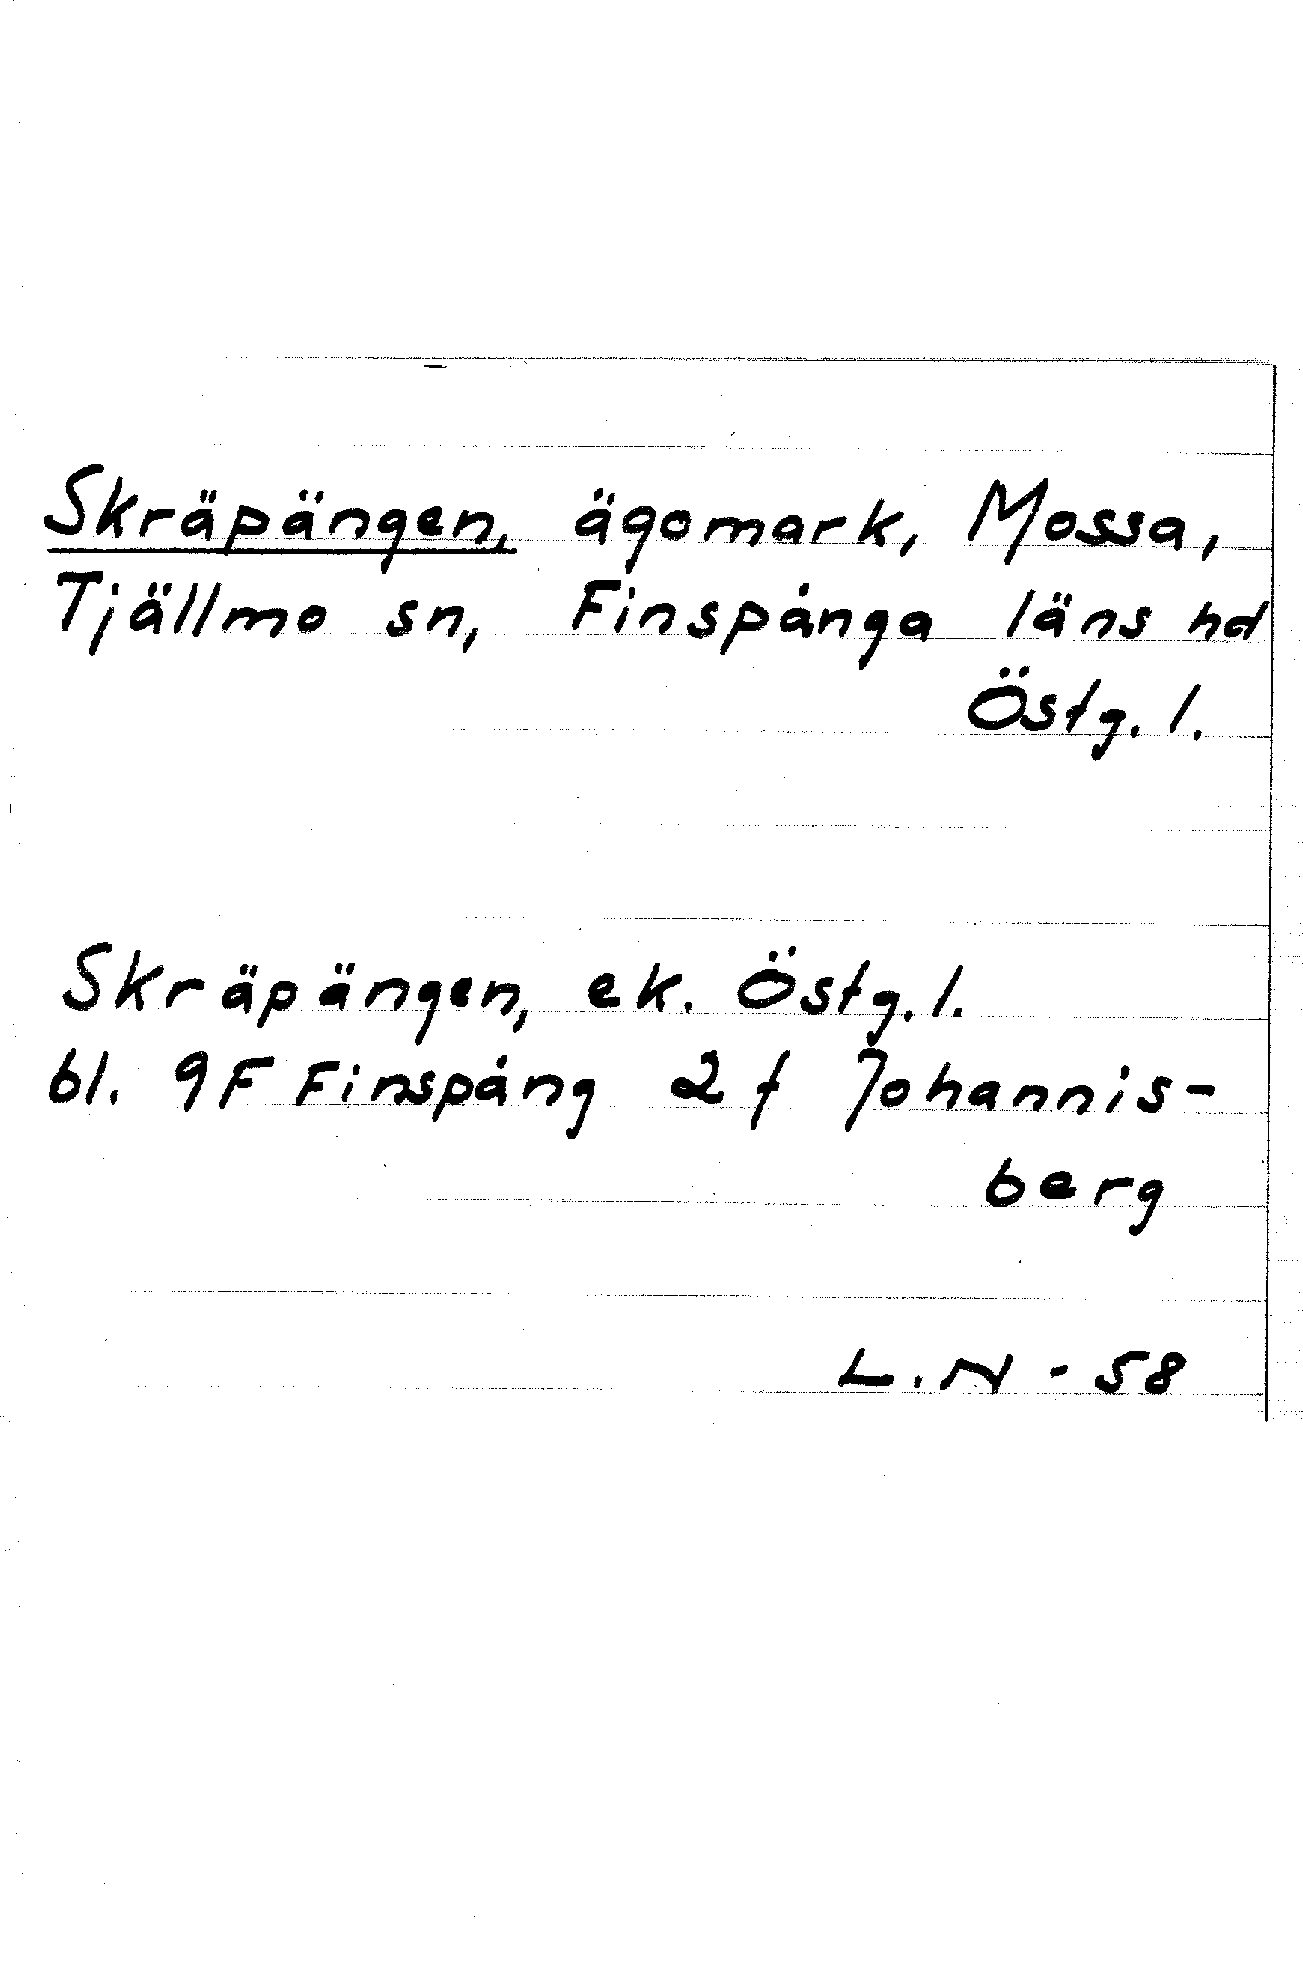 Skräpängen, ägomark, Mossa,
Tjällmo sn, Finspånga läns hd
Östg. l.
Skräpängen, ek. Östg. l.
bl. 9F Finspång 2 f Johannis-
berg
L.N - 58